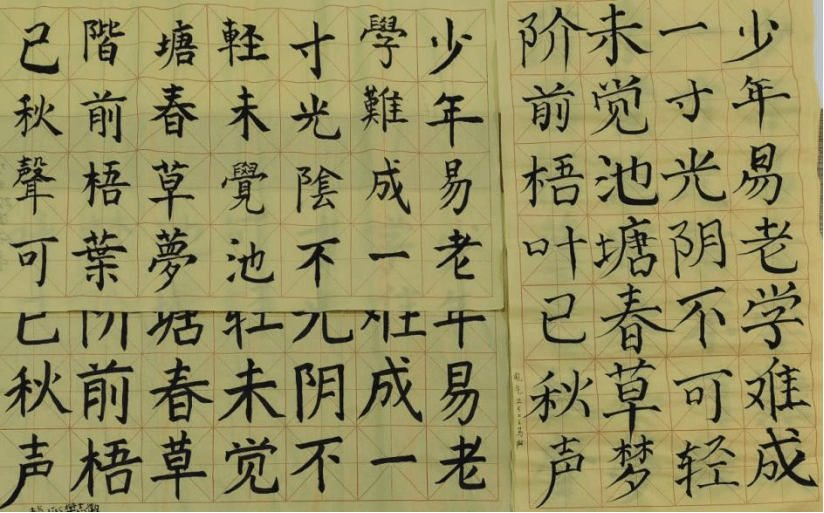 少年易老学难成
一寸光阴不可轻
未觉池塘春草梦
阶前梧叶已秋声
少年易老
學難成一
寸光陰不
軽未覺池
塘春草夢
階前梧葉
已秋聲可
年易老
难成一
光阴不
轻未觉
塘春草
阶前梧
已秋声